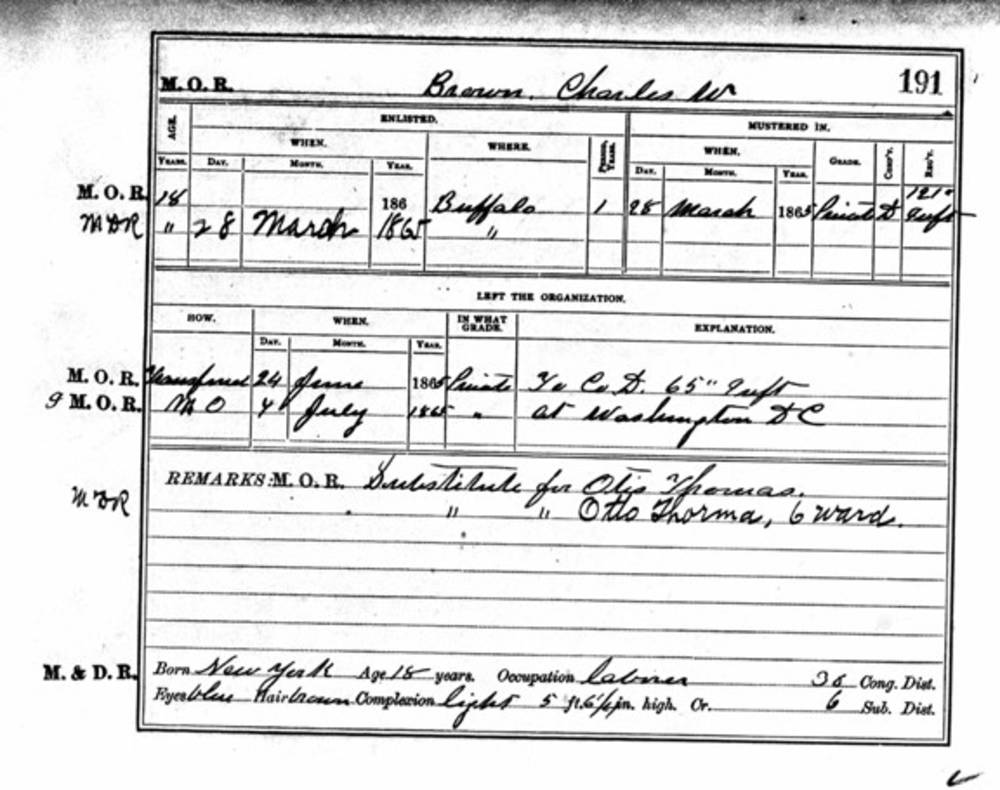 M. O. R. Brown, Charles W 191
ENLISTED. MUSTERED IN.
AGE. WHEN. WHERE. PERIOD, YEARS. WHEN. GRADE. COMP'Y. REG'T.
YEARS. DAY. MONTH. YEAR. DAY. MONTH. YEAR.
M. O. R. 18 186 Buffalo 1 28 March 1865 Private D 121" Inft
M D R " 28 March 1865 "
LEFT THE ORGANIZATION.
HOW. WHEN. IN WHAT GRADE. EXPLANATION.
DAY. MONTH. YEAR.
M. O. R. Transferred 24 June 1865 Private To Co D. 65" Inft
M. O. R. M O 4 July 1865 " at Washington D C
REMARKS: M. O. R. Substitute for Otis Thomas.
M D R " " Otto Thorma, 6 ward.
M. & D. R. Born New York Age 18 years. Occupation laborer Cong. Dist.
Eyes blue Hair brown Complexion light 5 ft. in. high. Cr. 6 Sub. Dist.